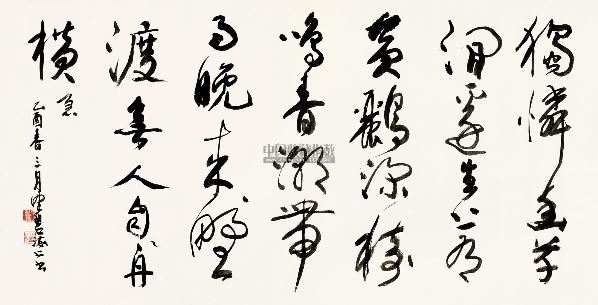 獨憐幽草
澗邊生上有
黃鸝深樹
鳴春潮帶
雨晚來野
渡無人自舟
橫
急
乙酉春三月